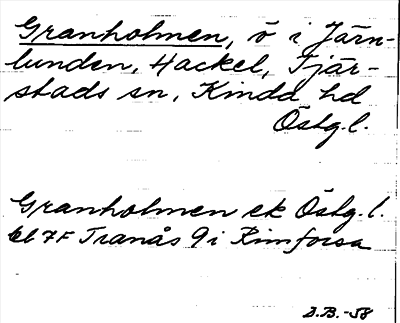 Granholmen, ö i Järn-
lunden, Hackel, Tjär-
stads sn, Kinda hd
Östg.l.
Granholmen ek Östg.l.
bl 7F Tranås 9i Rimforsa
B.B.-58